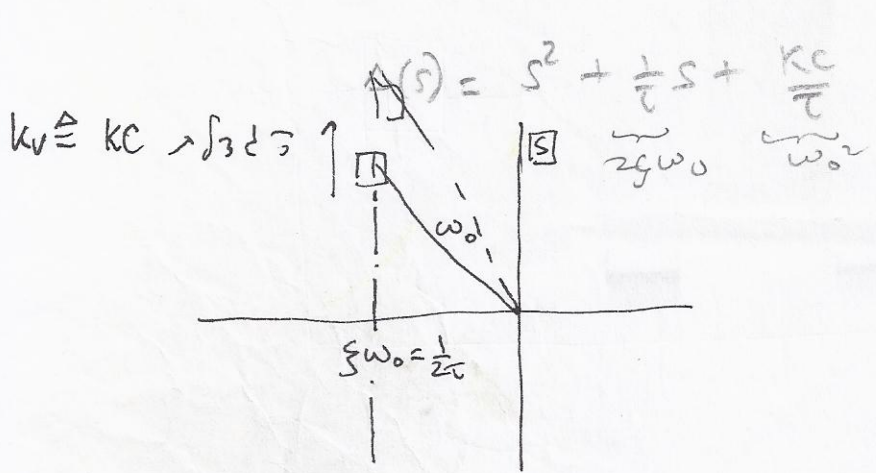 Δ(s) = s² + 1/τ s + KC/τ
2ζω₀ ω₀²
Kv ≜ KC
S
ω₀
ζω₀ = 1/2τ